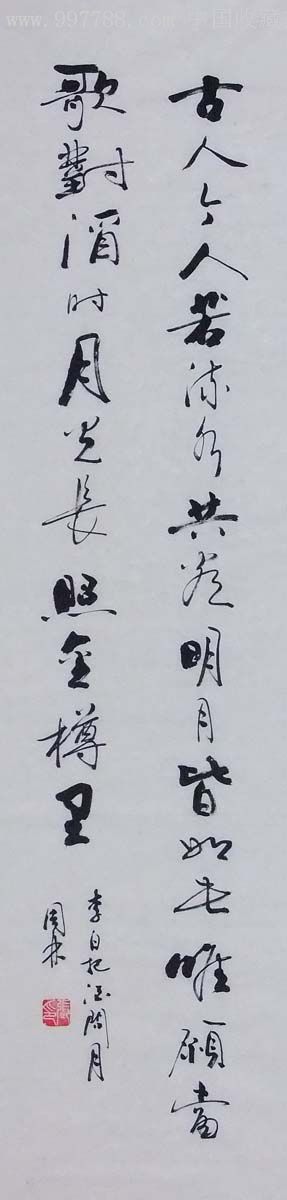 www.997788.com 中国收藏
古人今人若流水共看明月皆如此唯愿當
歌對酒时月光長照金樽里
李白把酒問月